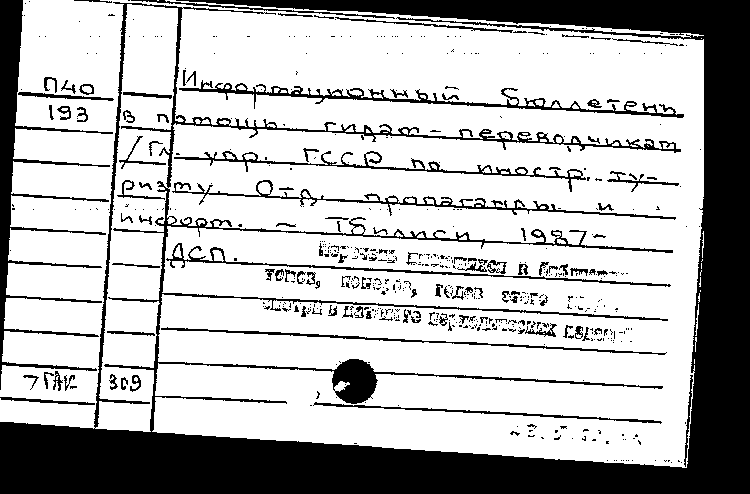 П40
193
Информационный бюллетень
в помощь гидам-переводчикам
/Гл. упр. ГССР по иностр. ту-
ризму. Отд. пропаганды и
информ. - Тбилиси, 1987-
ДСП.
Перечень имеющихся в библиотеке
томов, номеров, годов этого
смотри в каталоге периодических изданий
7 ГАК 309